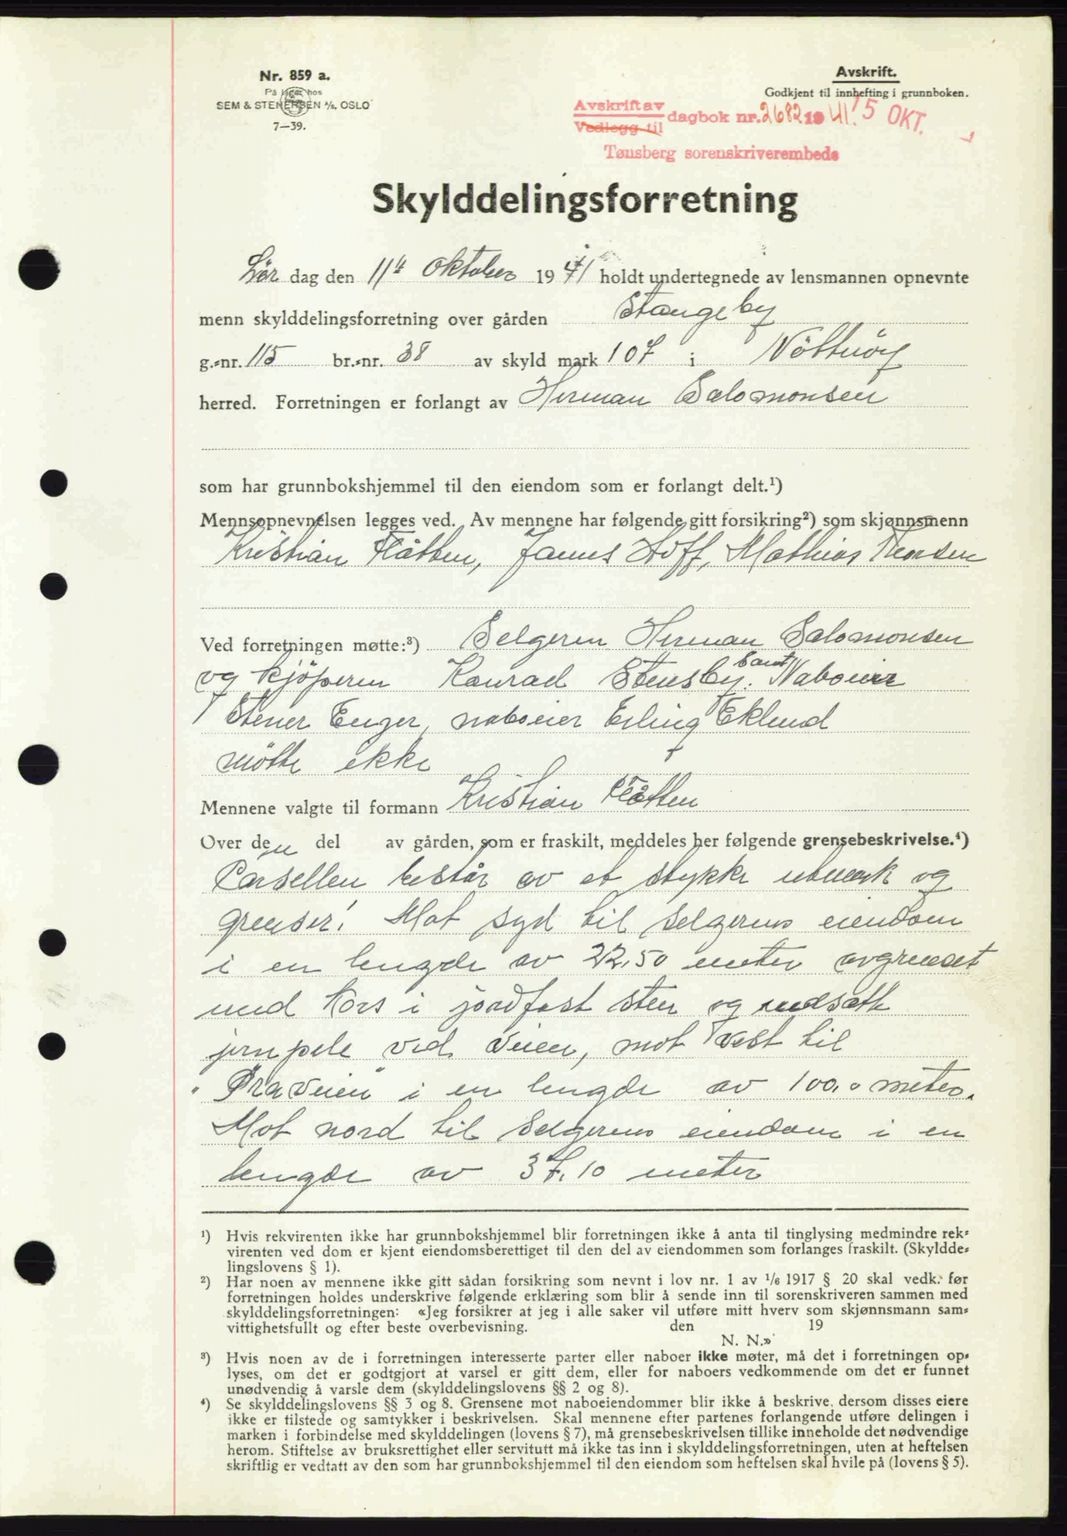 Nr. 859 a.
På lager hos
SEM & STENERSEN A/S, OSLO
7—39.
Avskrift.
Godkjent til innhefting i grunnboken.
Avskrift av
Vedlegg til
dagbok nr. 2682 19 41. 15 OKT.
Tønsberg sorenskriverembede
Skylddelingsforretning
Lør dag den 11te oktober 19 41 holdt undertegnede av lensmannen opnevnte
menn skylddelingsforretning over gården Stangeby
g.-nr. 115 br.-nr. 38 av skyld mark 1 07 i Nötteröy
herred. Forretningen er forlangt av Herman Salomonsen
som har grunnbokshjemmel til den eiendom som er forlangt delt.¹)
Mennsopnevnelsen legges ved. Av mennene har følgende gitt forsikring²) som skjønnsmenn
Kristian Flåtten, James Hoff, Mathias
Ved forretningen møtte:³) Selgeren Herman Salomonsen
og kjöperen Konrad Stensby. samt Naboeier
Stener Enger, naboeier Erling Eklund
mötte ikke
Mennene valgte til formann Kristian Flåtten
Over den del av gården, som er fraskilt, meddeles her følgende grensebeskrivelse.⁴)
Parsellen består av et stykke utmark og
grenser: Mot syd til selgerens eiendom
i en lengde av 22,50 meter avgrenset
med kors i jordfast sten og nedsatt
jernpele ved veien, mot vest til
" veien" i en lengde av 100,0 meter.
Mot nord til Selgerens eiendom i en
lengde av 37,10 meter
¹) Hvis rekvirenten ikke har grunnbokshjemmel blir forretningen ikke å anta til tinglysing medmindre rek-
virenten ved dom er kjent eiendomsberettiget til den del av eiendommen som forlanges fraskilt. (Skyldde-
lingslovens § 1).
²) Har noen av mennene ikke gitt sådan forsikring som nevnt i lov nr. 1 av 1/6 1917 § 20 skal vedk. før
forretningen holdes underskrive følgende erklæring som blir å sende inn til sorenskriveren sammen med
skylddelingsforretningen: «Jeg forsikrer at jeg i alle saker vil utføre mitt hverv som skjønnsmann sam-
vittighetsfullt og efter beste overbevisning. den 19
N. N.»
³) Hvis noen av de i forretningen interesserte parter eller naboer ikke møter, må det i forretningen op-
lyses, om det er godtgjort at varsel er gitt dem, eller for naboers vedkommende om det er funnet
unødvendig å varsle dem (skylddelingslovens §§ 2 og 8).
⁴) Se skylddelingslovens §§ 3 og 8. Grensene mot naboeiendommer blir ikke å beskrive, dersom disses eiere
ikke er tilstede og samtykker i beskrivelsen. Skal mennene efter partenes forlangende utføre delingen i
marken i forbindelse med skylddelingen (lovens § 7), må grensebeskrivelsen tillike inneholde det nødvendige
herom. Stiftelse av bruksrettighet eller servitutt må ikke tas inn i skylddelingsforretningen, uten at heftelsen
skriftlig er vedtatt av den som har grunnbokshjemmel til den eiendom som heftelsen skal hvile på (lovens § 5).